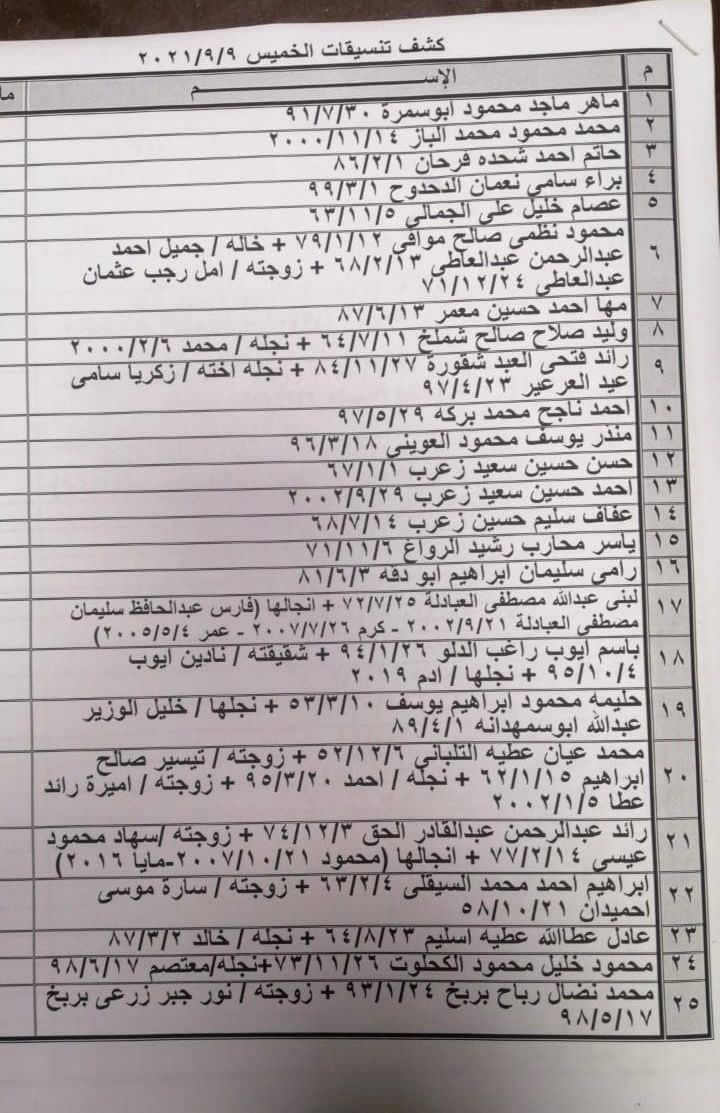 كشف تنسيقات الخميس ٢٠٢١/٩/٩
م الإســـــــــم ما
١ ماهر ماجد محمود ابوسمرة ٩١/٧/٣٠
٢ محمد محمود محمد الباز ٢٠٠٠/١١/١٤
٣ حاتم احمد شحده فرحان ٨٦/٢/١
٤ براء سامى نعمان الدحدوح ٩٩/٣/١
٥ عصام خليل على الجمالى ٦٣/١١/٥
٦ محمود نظمى صالح موافى ٧٩/١/١٢ + خاله / جميل احمد
عبدالرحمن عبدالعاطى ٦٨/٢/١٣ + زوجته / امل رجب عثمان
عبدالعاطى ٧١/١٢/٢٤
٧ مها احمد حسين معمر ٨٧/٦/١٣
٨ وليد صلاح صالح شملخ ٦٤/٧/١١ + نجله / محمد ٢٠٠٠/٢/٦
٩ رائد فتحى العبد شقورة ٨٤/١١/٢٧ + نجله اخته / زكريا سامى
عيد العرعير ٩٧/٤/٢٣
١٠ احمد ناجح محمد بركه ٩٧/٥/٢٩
١١ منذر يوسف محمود العوينى ٩٦/٣/١٨
١٢ حسن حسين سعيد زعرب ٦٧/١/١
١٣ احمد حسين سعيد زعرب ٢٠٠٢/٩/٢٩
١٤ عفاف سليم حسين زعرب ٦٨/٧/١٤
١٥ ياسر محارب رشيد الرواغ ٧١/١١/٦
١٦ رامى سليمان ابراهيم ابو دقه ٨١/٦/٣
١٧ لبنى عبدالله مصطفى العبادلة ٧٢/٧/٢٥ + انجالها (فارس عبدالحافظ سليمان
مصطفى العبادلة ٢٠٠٢/٩/٢١ - كرم ٢٠٠٧/٧/٢٦ - عمر ٢٠٠٥/٥/٤)
١٨ باسم ايوب راغب الدلو ٩٤/١/٢٦ + شقيقته / نادين ايوب
٩٥/١٠/٤ + نجلها / ادم ٢٠١٩
١٩ حليمه محمود ابراهيم يوسف ٥٣/٣/١٠ + نجلها / خليل الوزير
عبدالله ابوسمهدانه ٨٩/٤/١
٢٠ محمد عيان عطيه التلبانى ٥٢/١٢/٦ + زوجته / تيسير صالح
ابراهيم ٦٢/١/١٥ + نجله / احمد ٩٥/٣/٢٠ + زوجته / اميرة رائد
عطا ٢٠٠٢/١/٥
٢١ رائد عبدالرحمن عبدالقادر الحق ٧٤/١٢/٣ + زوجته /سهاد محمود
عيسى ٧٧/٢/١٤ + انجالها (محمود ٢٠٠٧/١٠/٢١-مايا ٢٠١٦)
٢٢ ابراهيم احمد محمد السيقلى ٦٣/٢/٤ + زوجته / سارة موسى
احميدان ٥٨/١٠/٢١
٢٣ عادل عطاالله عطيه اسليم ٦٤/٨/٢٣ + نجله / خالد ٨٧/٣/٢
٢٤ محمود خليل محمود الكحلوت ٧٣/١١/٢٦+نجله/معتصم ٩٨/٦/١٧
٢٥ محمد نضال رباح بربخ ٩٣/١/٢٤ + زوجته / نور جبر زرعى بربخ
٩٨/٥/١٧